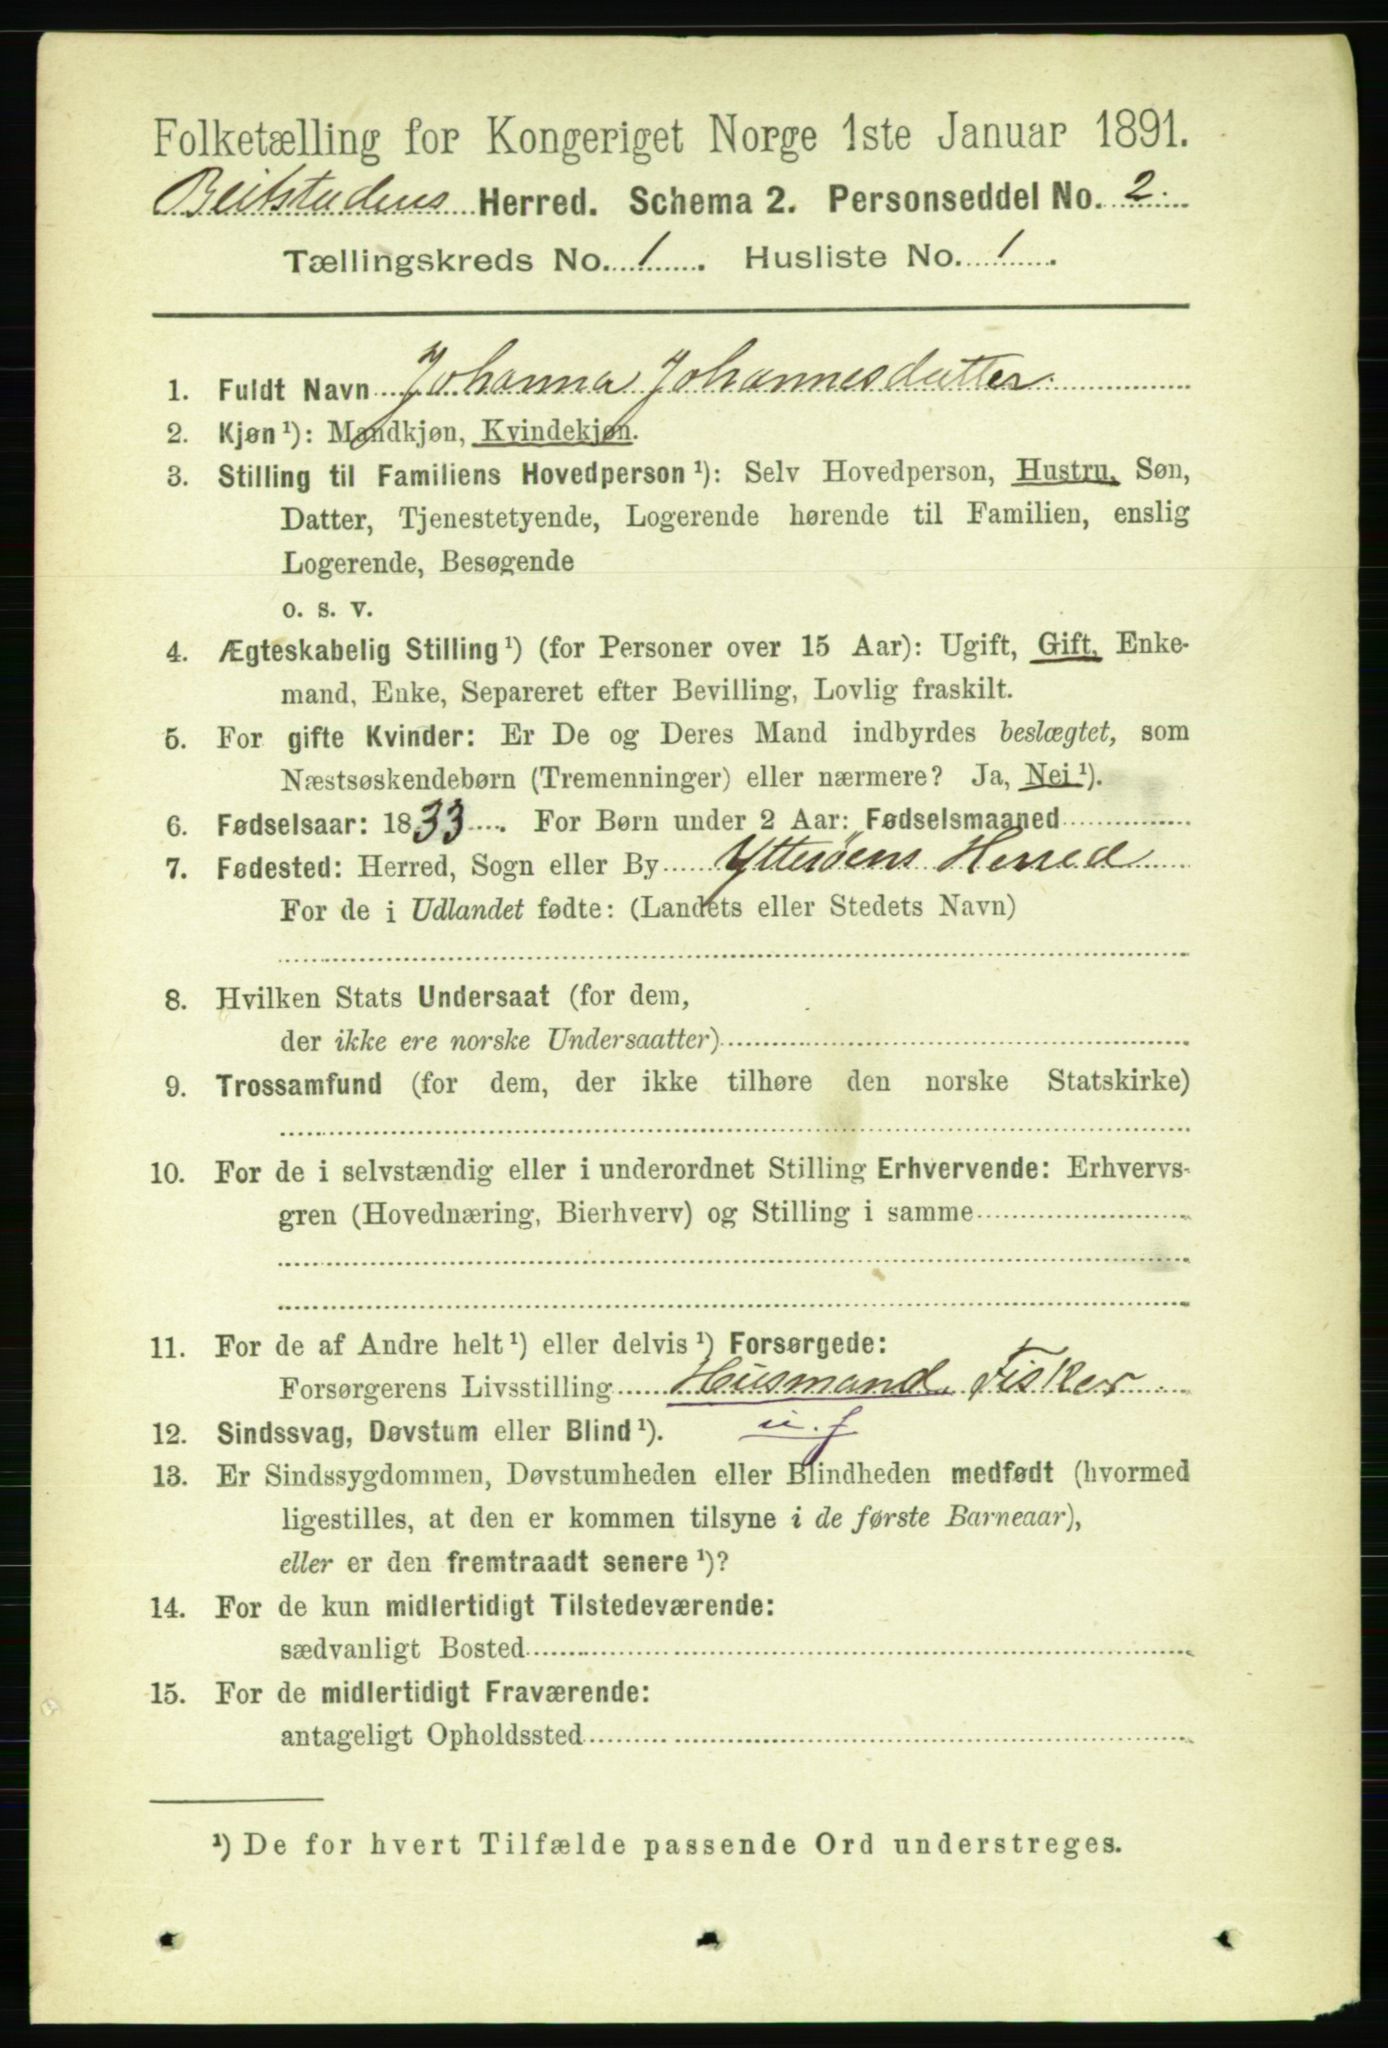 Folketælling for Kongeriget Norge 1ste Januar 1891.
Beitstadens Herred. Schema 2. Personseddel No. 2.
Tællingskreds No. 1. Husliste No. 1.
1. Fuldt Navn Johanna Johannesdatter
2. Kjøn ¹): Mandkjøn, Kvindekjøn.
3. Stilling til Familiens Hovedperson ¹): Selv Hovedperson, Hustru, Søn,
Datter, Tjenestetyende, Logerende hørende til Familien, enslig
Logerende, Besøgende
o. s. v.
4. Ægteskabelig Stilling ¹) (for Personer over 15 Aar): Ugift, Gift, Enke-
mand, Enke, Separeret efter Bevilling, Lovlig fraskilt.
5. For gifte Kvinder: Er De og Deres Mand indbyrdes beslægtet, som
Næstsøskendebørn (Tremenninger) eller nærmere? Ja, Nei ¹).
6. Fødselsaar: 1833. For Børn under 2 Aar: Fødselsmaaned
7. Fødested: Herred, Sogn eller By Ytterøens Herred
For de i Udlandet fødte: (Landets eller Stedets Navn)
8. Hvilken Stats Undersaat (for dem,
der ikke ere norske Undersaatter)
9. Trossamfund (for dem, der ikke tilhøre den norske Statskirke)
10. For de i selvstændig eller i underordnet Stilling Erhvervende: Erhvervs-
gren (Hovednæring, Bierhverv) og Stilling i samme
11. For de af Andre helt ¹) eller delvis ¹) Forsørgede:
Forsørgerens Livsstilling Husmand, Fisker
12. Sindssvag, Døvstum eller Blind ¹). u. f
13. Er Sindssygdommen, Døvstumheden eller Blindheden medfødt (hvormed
ligestilles, at den er kommen tilsyne i de første Barneaar),
eller er den fremtraadt senere ¹)?
14. For de kun midlertidigt Tilstedeværende:
sædvanligt Bosted
15. For de midlertidigt Fraværende:
antageligt Opholdssted
¹) De for hvert Tilfælde passende Ord understreges.